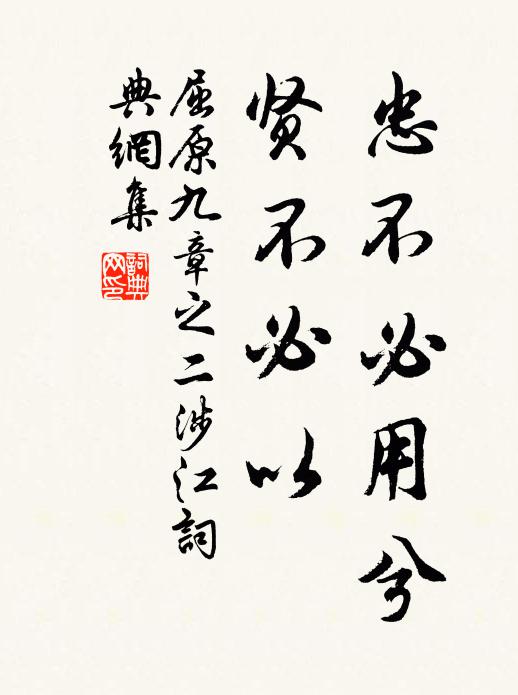 忠不必用兮
贤不必以
屈原九章之二涉江詞
典網集
詞典網印